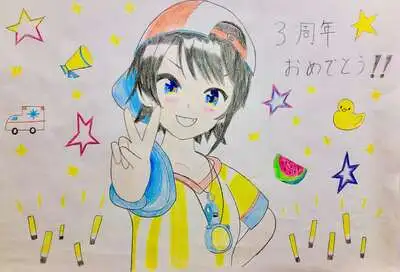 3周年
おめでとう!!